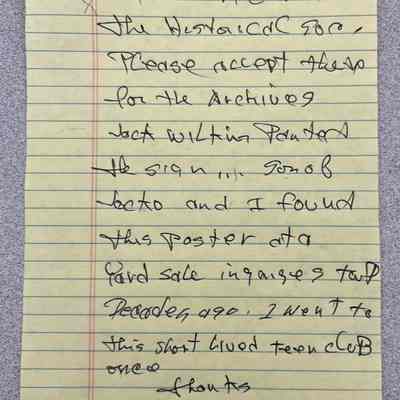 the Historical Soc.
Please accept these
for the Archives
Jack Wilkins Painted
the sign... Son of
and I found
this poster at a
Yard sale in
Decades ago. I went to
this short lived teen cluB
once
thanks